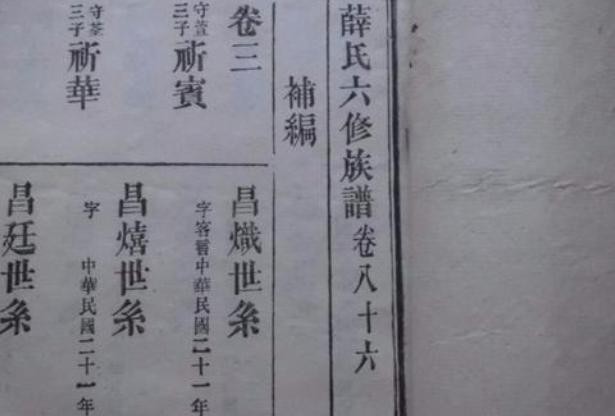 薛氏六修族譜卷八十六
補編
卷三
守萱三子祈賓
守荃三子祈華
昌熾世系
字容晉中華民國二十一年
昌熺世系
字 中華民國二十一年
昌廷世系